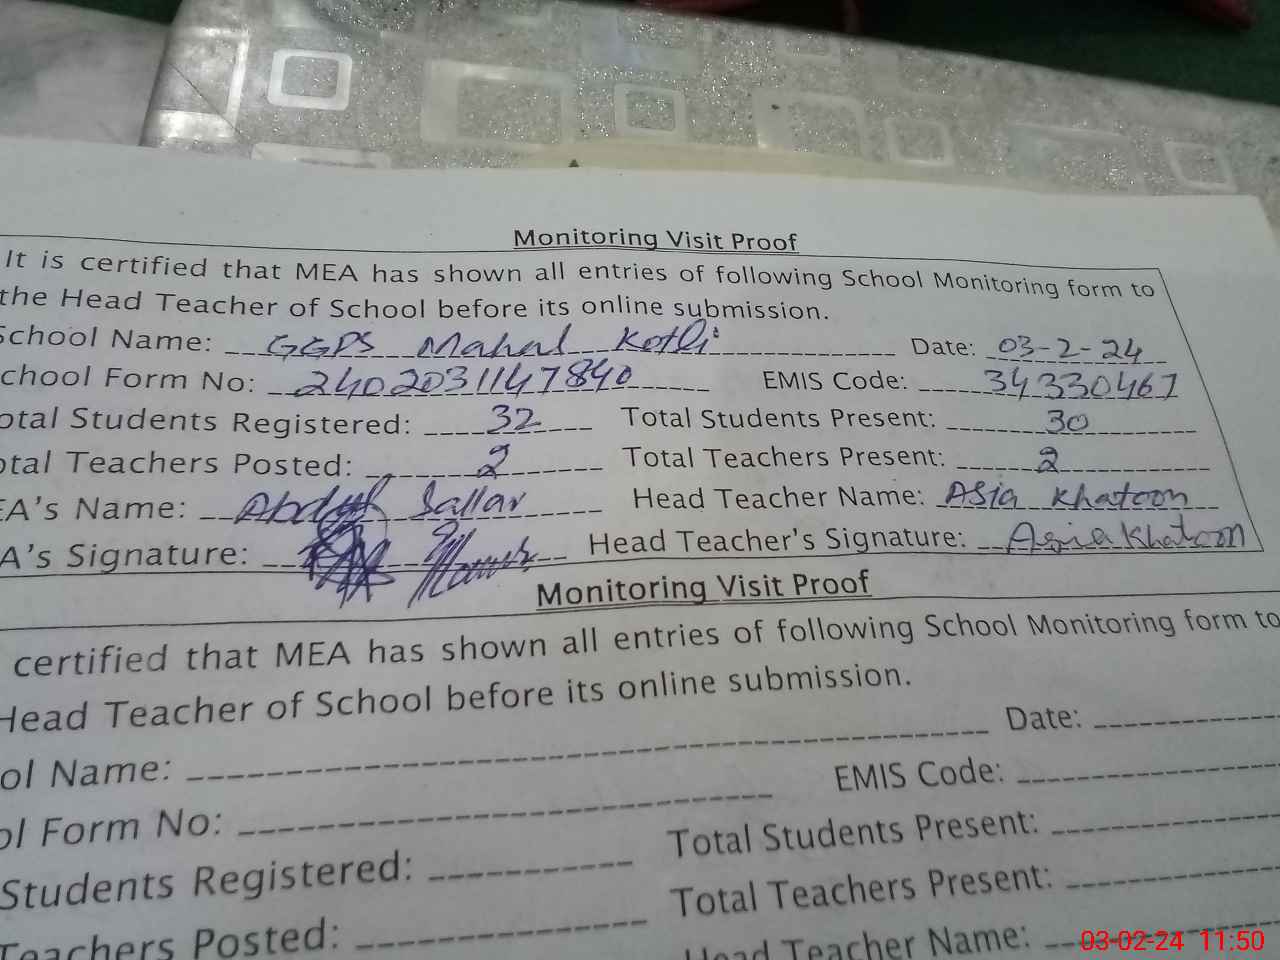 Monitoring Visit Proof
It is certified that MEA has shown all entries of following School Monitoring form to
the Head Teacher of School before its online submission.
School Name: GGPS Mahal Kotli Date: 03-2-24
chool Form No: 2402031147840 EMIS Code: 34330467
otal Students Registered: 32 Total Students Present: 30
otal Teachers Posted: 2 Total Teachers Present: 2
EA's Name: Sattar Head Teacher Name: Asia Khatoon
A's Signature: Head Teacher's Signature: Asia Khatoon
Monitoring Visit Proof
certified that MEA has shown all entries of following School Monitoring form to
Head Teacher of School before its online submission.
ol Name: Date:
ol Form No: EMIS Code:
Students Registered: Total Students Present:
Teachers Posted: Total Teachers Present:
Head Teacher Name:
03-02-24 11:50